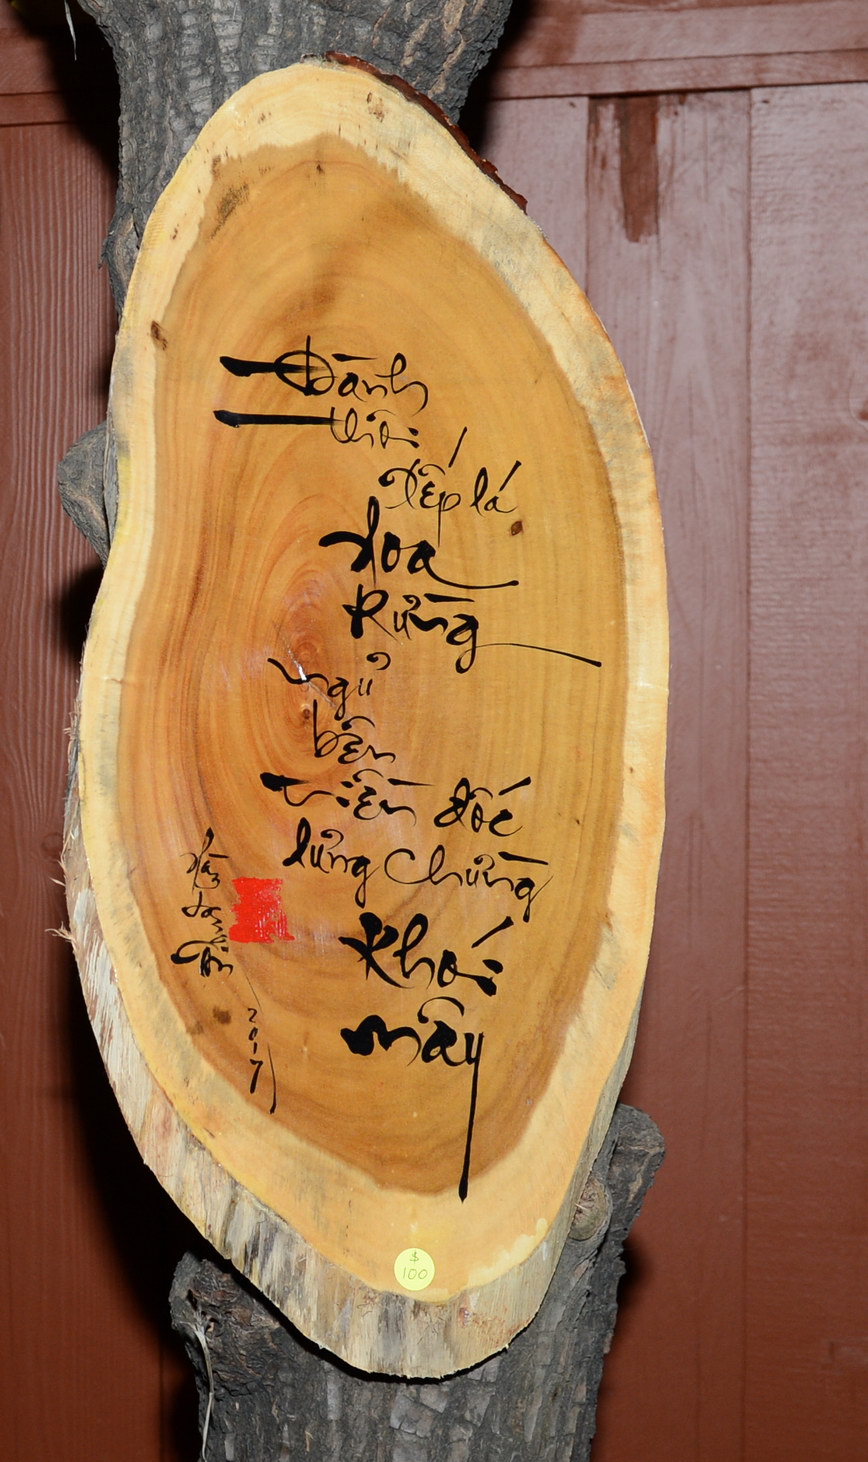 Đành
thôi
xếp lá
hoa
Rừng
ngủ
bên
triền dốc
lưng chừng
khói
mây
2017
$
100